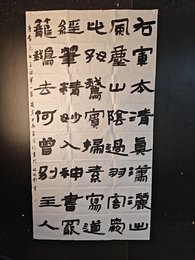 右軍本清真瀟灑出
風塵山陰過羽客愛
此好鵝賓掃素寫道
經筆精妙入神書罷
籠鵝去何曾別主人